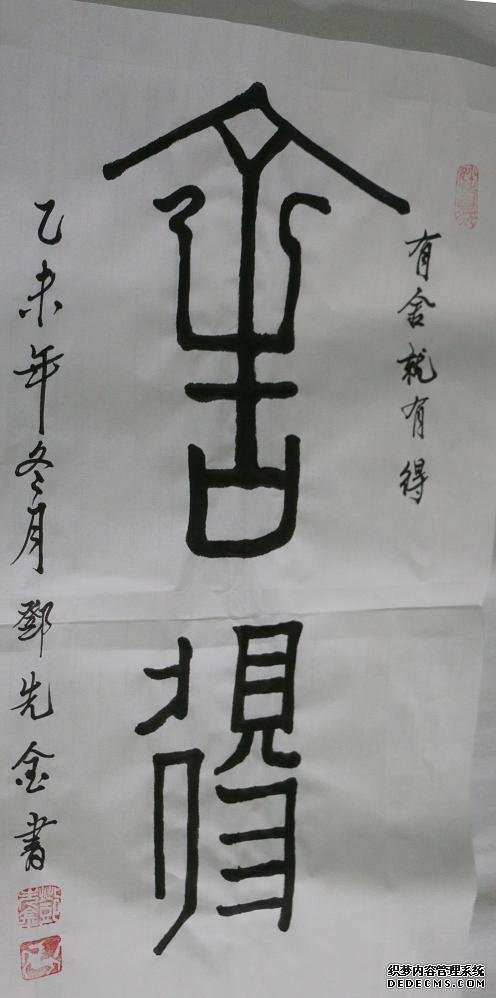 舍得
有舍就有得
乙未年冬月鄧先金書
织梦内容管理系统
DEDECMS.COM